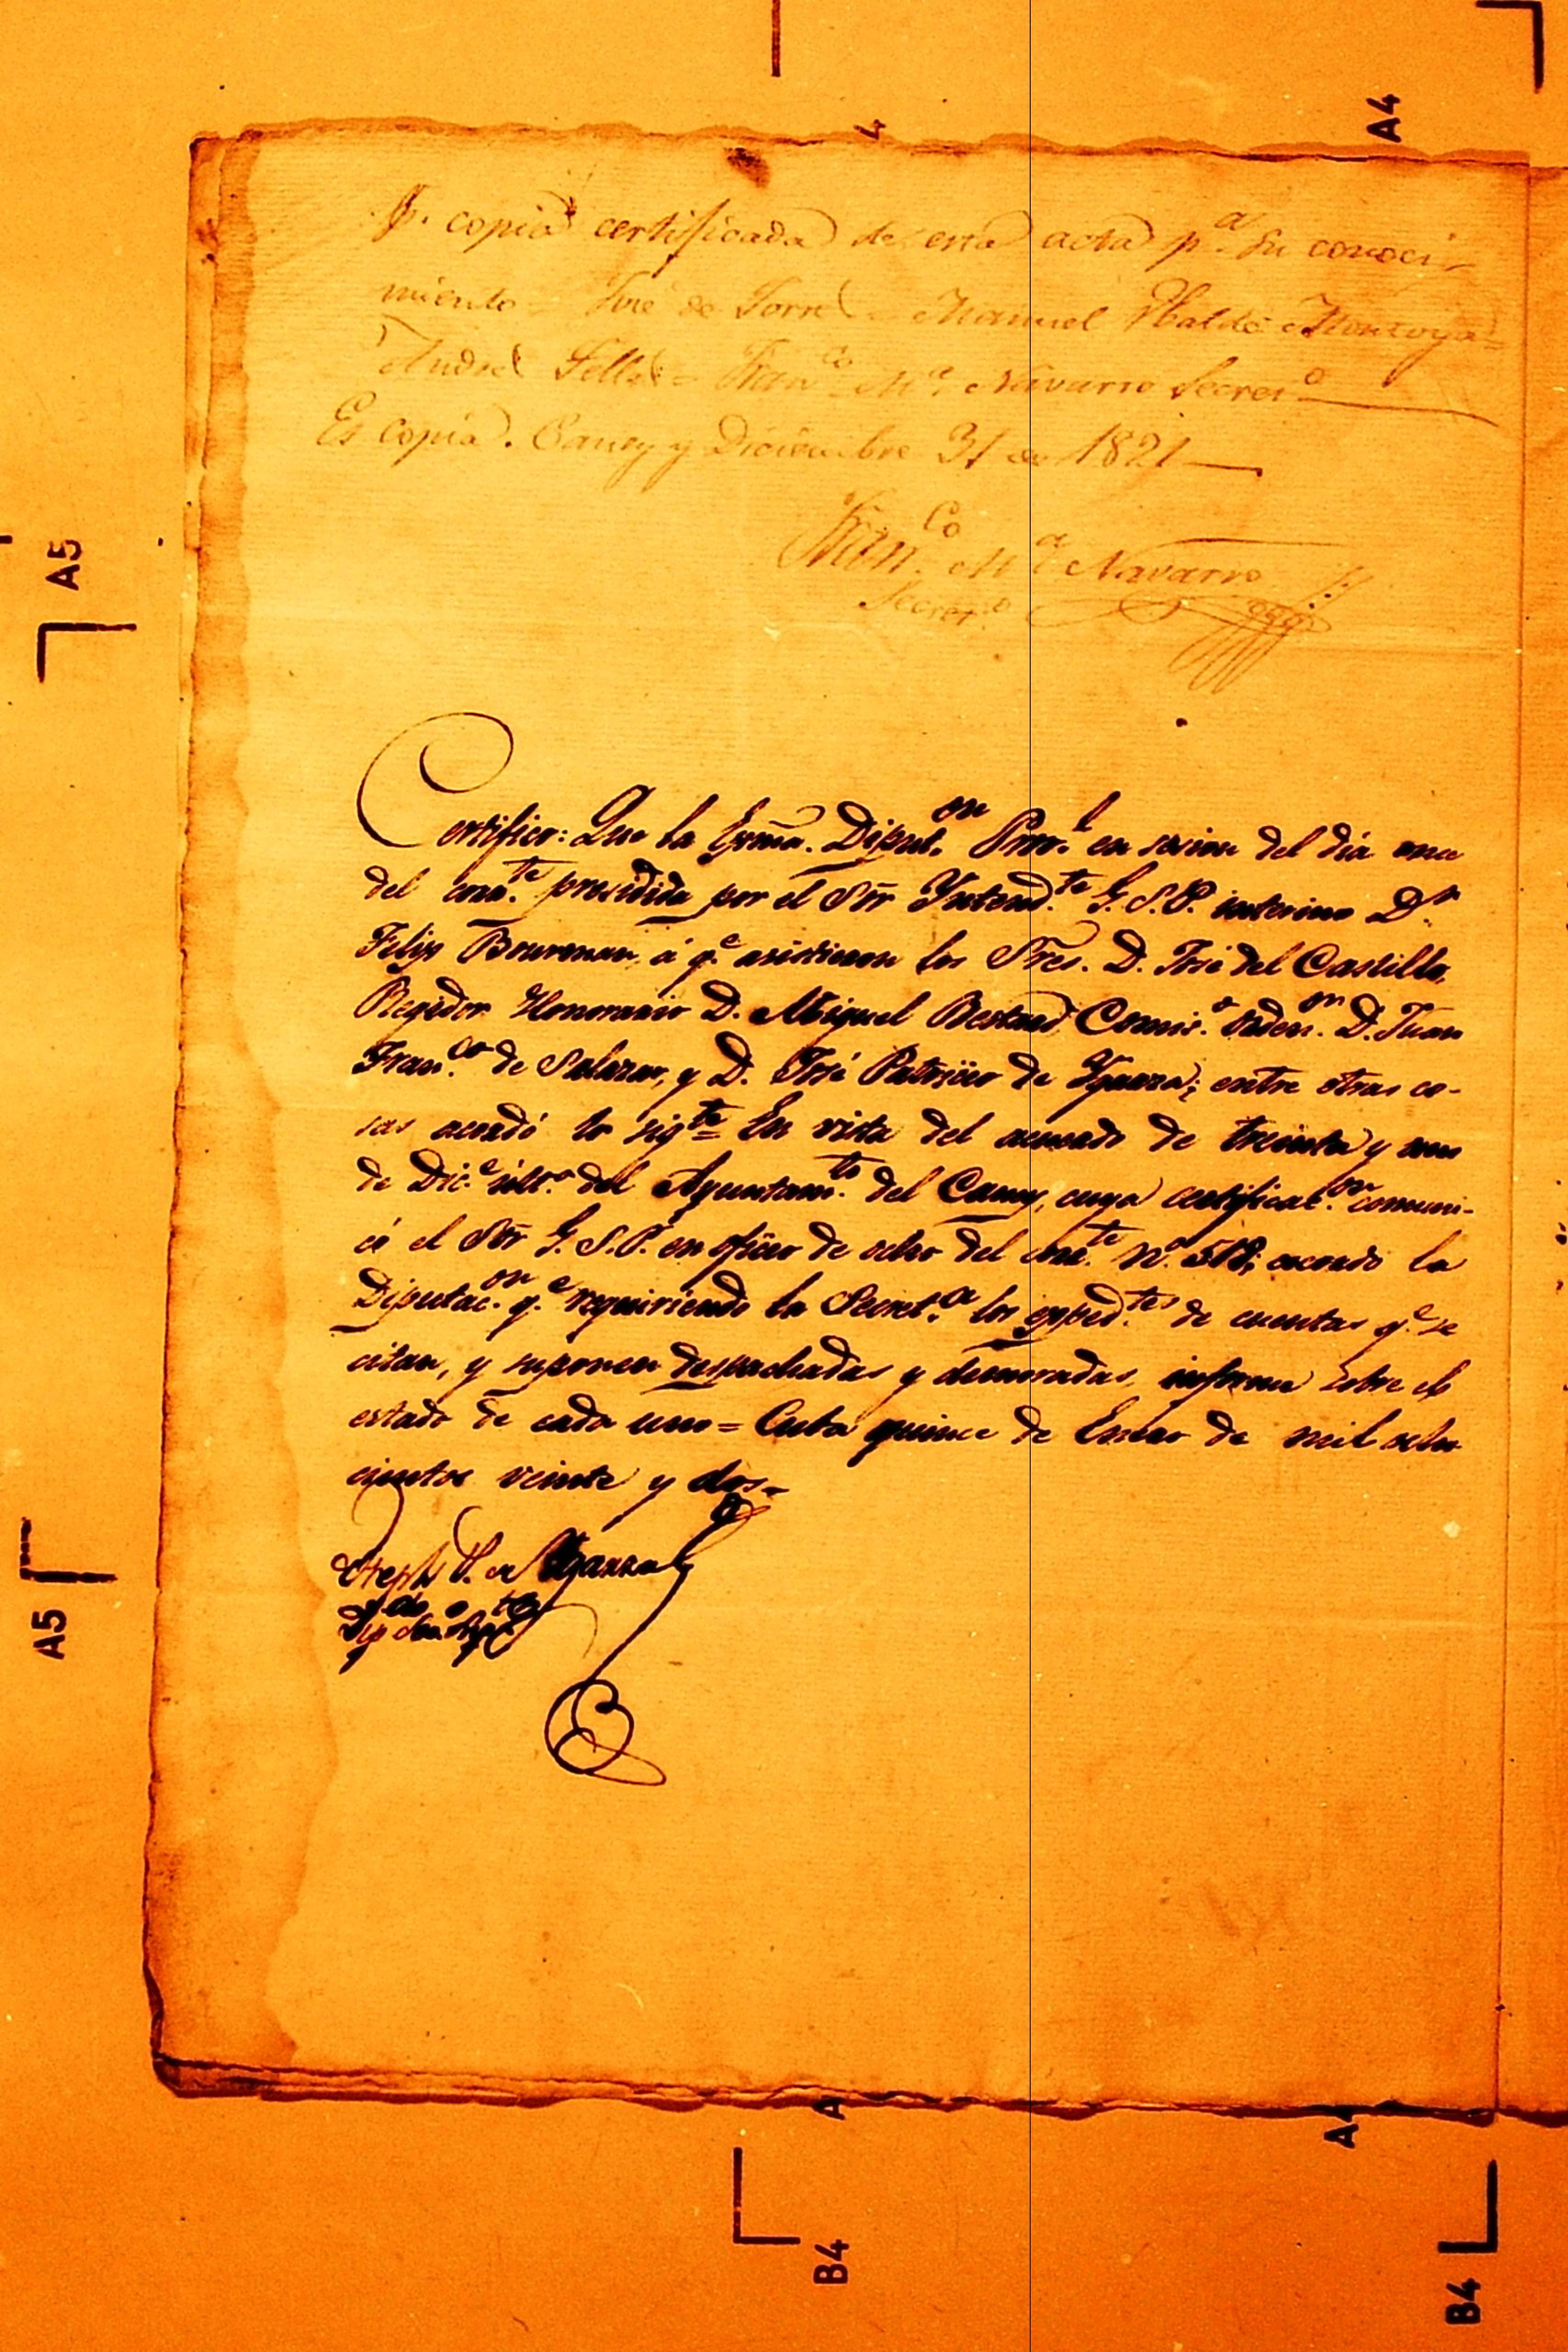 p. copia certificada de esta acta p.a su conoci-
miento = José de Torre = Manuel Ubaldo Montoya =
Andrés Tellez = Fran.co M.a Navarro Secret.o
Es copia. Caney y Diciembre 31 de 1821
Fran.co M.a Navarro
Secret.o
Certifico: Que la Exma. Diput.on Prov.l en sesion del dia once
del corr.te presidida por el Sõr Yntend.te G.S.P. interino D.n
Felipe Bourman, á q.e asistieron los Sres. D. José del Castillo,
Regidor Honorario D. Miguel Bestard, Comis.o orden.or D. Juan
Fran.co de Salazar, y D. José Patricio de Yzarra; entre otras co-
sas acordó lo sig.te = En vista del acuerdo de treinta y uno
de Dic.e últ.o del Ayuntam.to del Caney, cuya certificac.on comuni-
có el Sõr G.S.P. en oficio de ocho del corr.te N.o 518; acordó la
Diputac.on q.e requiriendo la Secret.a los exped.tes de cuentas q.e se
citan, y suponen despachadas y demoradas, informe sobre el
estado de cada uno = Cuba quince de Enero de mil ocho
cientos veinte y dos =
Joseph P. de Yzarra
A5
A5
A4
4
A
A4
B4
B4